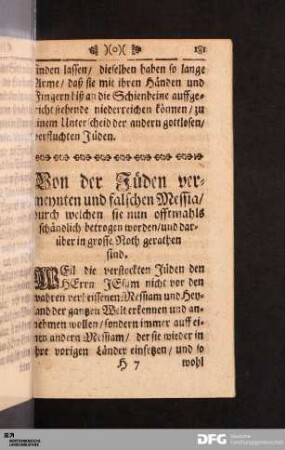 )(o)( 181
finden lassen/ dieselben haben so lange
Arme/ daß sie mit ihren Händen und
Fingern biß an die Schienbeine auffge-
richt stehende niederreichen können/ zu
einem Unterscheid der andern gottlosen/
verfluchten Jüden.
Von der Jüden ver-
meynten und falschen Messia/
durch welchen sie nun offtmahls
schändlich betrogen worden/ und dar-
über in grosse Noth gerathen
sind.
WEil die verstockten Jüden den
HErrn JEsum nicht vor den
wahren verheissenen Messiam und Hey-
land der gantzen Welt erkennen und an-
nehmen wollen/ sondern immer auff ei-
nen andern Messiam/ der sie wieder in
ihre vorigen Länder einsetzen/ und so
H 7 wohl
WÜRTTEMBERGISCHE
LANDESBIBLIOTHEK
DFG Deutsche
Forschungsgemeinschaft